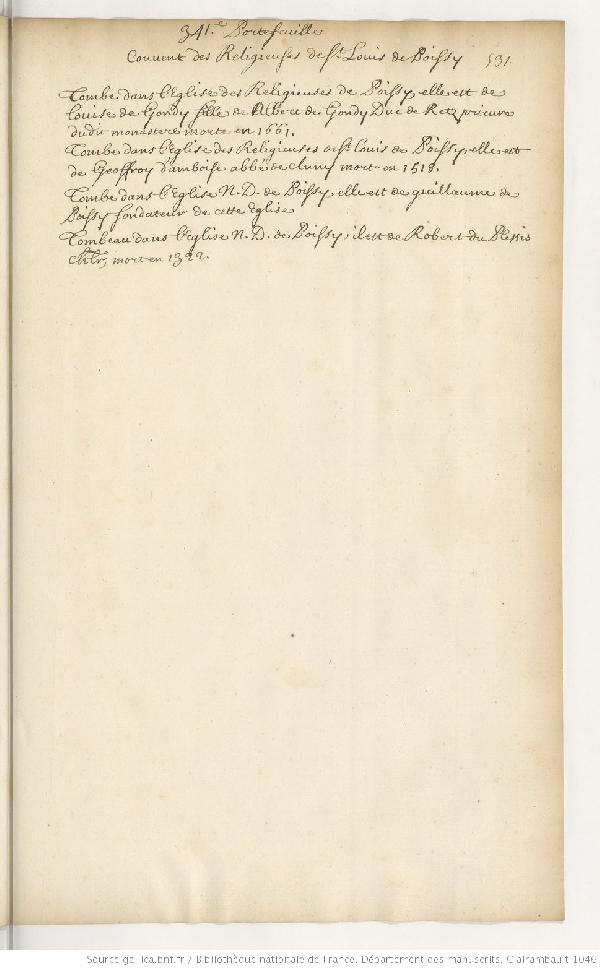 341.e Portefeuille
Couvent des Religieuses de St. Louis de Poissy 531
Tombe dans l'Eglise des Religieuses de Poissy, elle est de
Louise de Gondy fille de Albert de Gondy Duc de Retz prieure
dudit monastere morte en 1661.
Tombe dans l'Eglise des Religieuses de St. Louis de Poissy, elle est
de Geoffroy d'amboise abbé de cluny mort en 1518.
Tombe dans l'Eglise N. D. de Poissy, elle est de guillaume de
Poissy fondateur de cette Eglise
Tombeau dans l'Eglise N. D. de Poissy, il est de Robert du Plessis
mort en 1322.
Source gallica.bnf.fr / Bibliothèque nationale de France. Département des manuscrits. Clairambault 1046